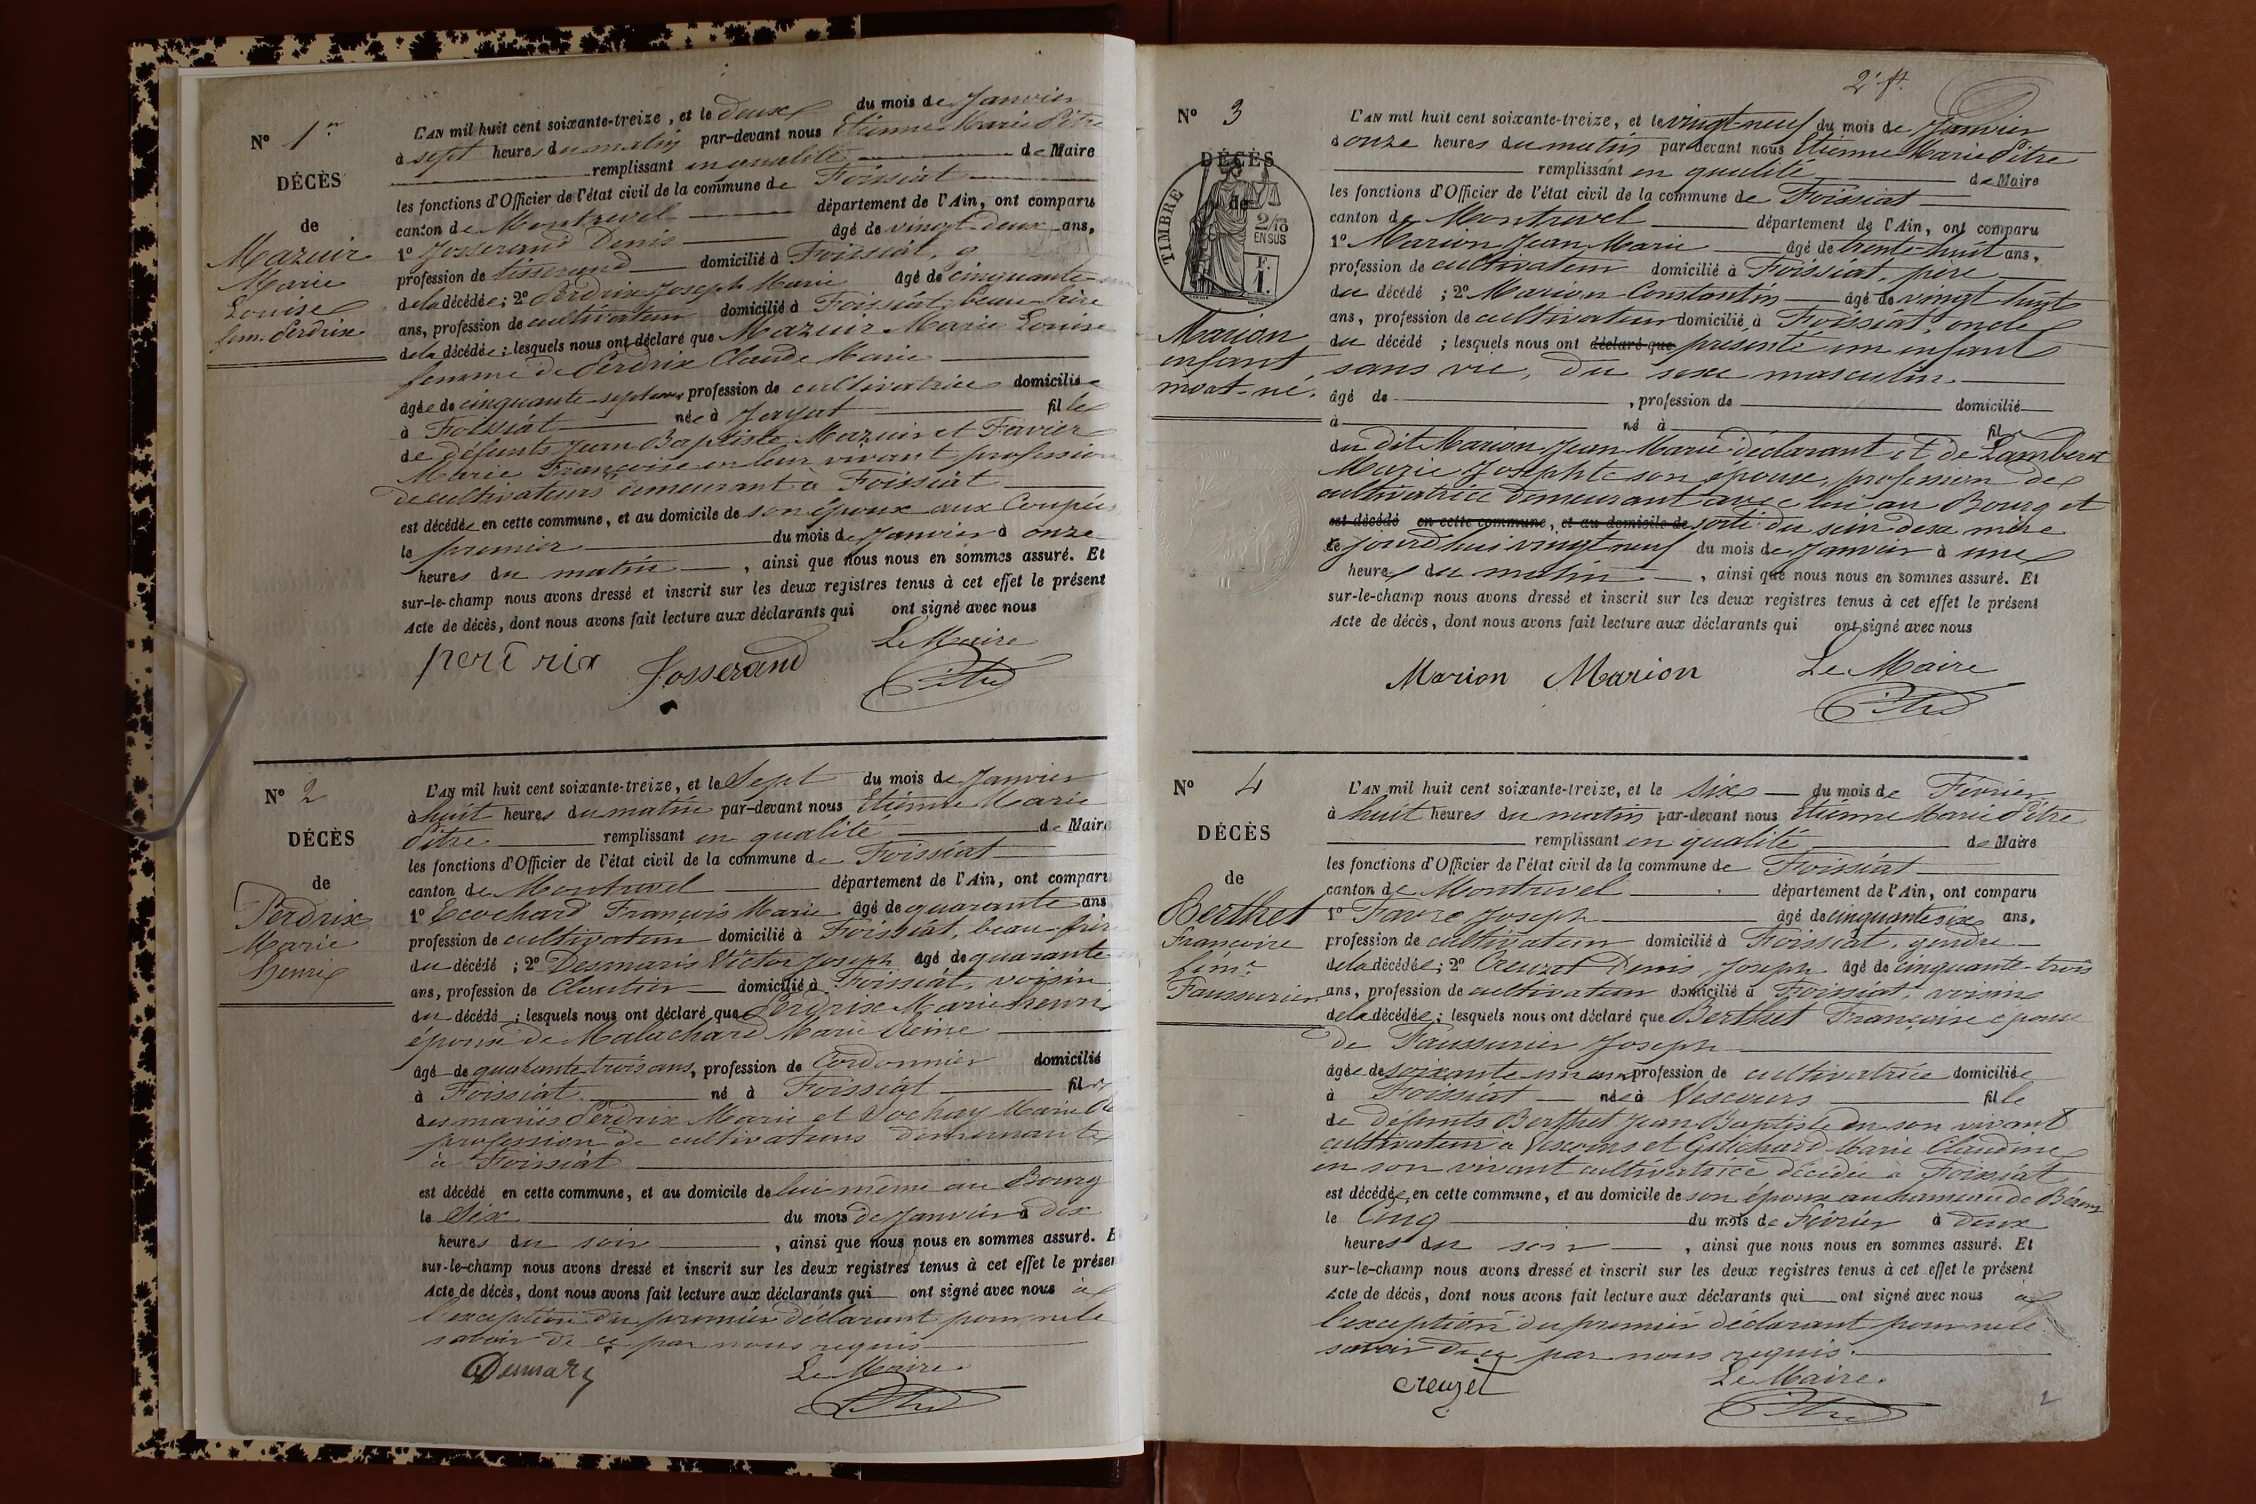 N° 1er
DÉCÈS
de
Mazuir
Marie
Louise
fem. Perdrix
L'AN mil huit cent soixante-treize, et le deux du mois de Janvier
à sept heures du matin par-devant nous Etienne Marie Pitre
remplissant en qualité de Maire
les fonctions d'Officier de l'état civil de la commune de Foissiat
canton de Montrevel département de l'Ain, ont comparu
1° Josserand Denis âgé de vingt-deux ans,
profession de tisserand domicilié à Foissiat,
de la décédée; 2° Perdrix Joseph Marie âgé de cinquante
ans, profession de cultivateur domicilié à Foissiat, beau-frère
de la décédée; lesquels nous ont déclaré que Mazuir Marie Louise
femme de Perdrix Claude Marie
âgée de cinquante-sept ans, profession de cultivatrice domiciliée
à Foissiat née à Jayat fille
de défunts Jean Baptiste Mazuir et Favier
Marie Françoise en leur vivant profession
de cultivateurs demeurant à Foissiat
est décédée en cette commune, et au domicile de son époux aux Coupées
le premier du mois de Janvier à onze
heures du matin, ainsi que nous nous en sommes assuré. Et
sur-le-champ nous avons dressé et inscrit sur les deux registres tenus à cet effet le présent
Acte de décès, dont nous avons fait lecture aux déclarants qui ont signé avec nous
Le Maire
perdrix Josserand Pitre
N° 2
DÉCÈS
de
Perdrix
Marie
henri
L'AN mil huit cent soixante-treize, et le Sept du mois de Janvier
à huit heures du matin par-devant nous Etienne Marie
Pitre remplissant en qualité de Maire
les fonctions d'Officier de l'état civil de la commune de Foissiat
canton de Montrevel département de l'Ain, ont comparu
1° Ecochard François Marie âgé de quarante ans
profession de cultivateur domicilié à Foissiat, beau-frère
du décédé; 2° Desmaris Victor Joseph âgé de quarante
ans, profession de Cloutier domicilié à Foissiat, voisin
du décédé; lesquels nous ont déclaré que Perdrix Marie henri
époux de Malachard Marie Reine
âgé de quarante-trois ans, profession de Cordonnier domicilié
à Foissiat né à Foissiat fils
des mariés Perdrix Marie et Vochay Marie
profession de cultivateurs demeurants
à Foissiat
est décédé en cette commune, et au domicile de lui même au Bourg
le Six du mois de Janvier à dix
heures du soir, ainsi que nous nous en sommes assuré. E
sur-le-champ nous avons dressé et inscrit sur les deux registres tenus à cet effet le présen
Acte de décès, dont nous avons fait lecture aux déclarants qui ont signé avec nous à
l'exception du premier déclarant pour ne le
savoir de ce par nous requis
Le Maire
Desmaris Pitre
2e ft.
N° 3
DÉCÈS
de
TIMBRE
2/10
EN SUS
F.
1.
Marion
enfant
mort-né.
L'AN mil huit cent soixante-treize, et le vingt neuf du mois de Janvier
à onze heures du matin par-devant nous Etienne Marie Pitre
remplissant en qualité de Maire
les fonctions d'Officier de l'état civil de la commune de Foissiat
canton de Montrevel département de l'Ain, ont comparu
1° Marion Jean Marie âgé de trente-huit ans,
profession de cultivateur domicilié à Foissiat, père
du décédé; 2° Marion Constantin âgé de vingt huit
ans, profession de cultivateur domicilié à Foissiat, oncle
du décédé; lesquels nous ont déclaré que présenté un enfant
sans vie, du sexe masculin.
âgé de , profession de domicilié
à né à fil
du dit Marion Jean Marie déclarant et de Lamberet
Marie Josephte son épouse, profession de
cultivatrice demeurant avec lui au Bourg et
est décédé en cette commune, et au domicile de sorti du sein de sa mère
le jourd'hui vingt neuf du mois de Janvier à une
heure du matin, ainsi que nous nous en sommes assuré. Et
sur-le-champ nous avons dressé et inscrit sur les deux registres tenus à cet effet le présent
Acte de décès, dont nous avons fait lecture aux déclarants qui ont signé avec nous
Marion Marion Le Maire
Pitre
N° 4
DÉCÈS
de
Berthet
Françoise
fem.
Faussurier
L'AN mil huit cent soixante-treize, et le six du mois de Février
à huit heures du matin par-devant nous Etienne Marie Pitre
remplissant en qualité de Maire
les fonctions d'Officier de l'état civil de la commune de Foissiat
canton de Montrevel département de l'Ain, ont comparu
1° Favre Joseph âgé de cinquante six ans,
profession de cultivateur domicilié à Foissiat, gendre
de la décédée; 2° Creuzet Denis Joseph âgé de cinquante-trois
ans, profession de cultivateur domicilié à Foissiat, voisin
de la décédée; lesquels nous ont déclaré que Berthet Françoise épouse
de Faussurier Joseph
âgée de soixante-un ans profession de cultivatrice domiciliée
à Foissiat née à Vescours fille
de défunts Berthet Jean Baptiste en son vivant
cultivateur à Vescours et Guichard Marie Claudine
en son vivant cultivatrice décédée à Foissiat
est décédée en cette commune, et au domicile de son époux au hameau de
le Cinq du mois de Février à deux
heures du soir, ainsi que nous nous en sommes assuré. Et
sur-le-champ nous avons dressé et inscrit sur les deux registres tenus à cet effet le présent
Acte de décès, dont nous avons fait lecture aux déclarants qui ont signé avec nous à
l'exception du premier déclarant pour ne le
savoir de ce par nous requis.
Le Maire.
creuzet Pitre
2